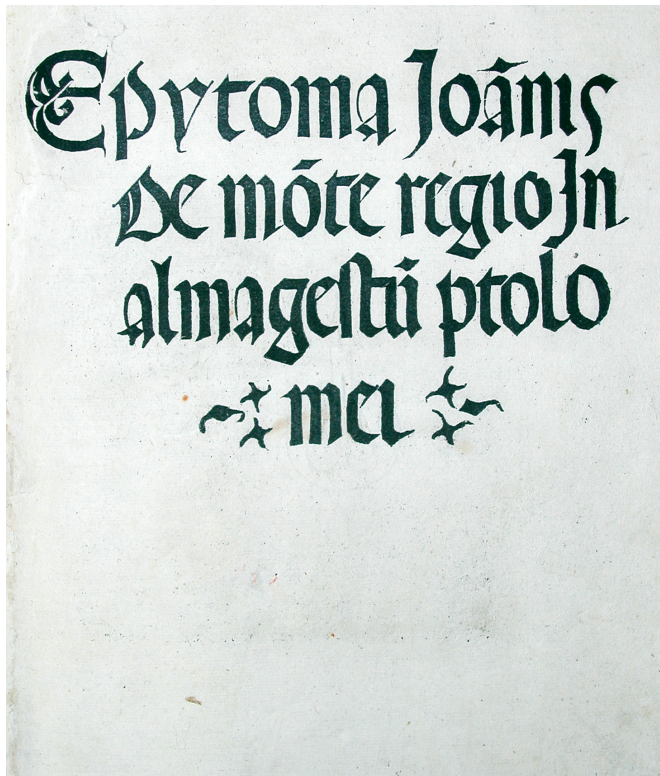 Epytoma Joānis
De mōte regio Jn
almagestū ptolo
mei